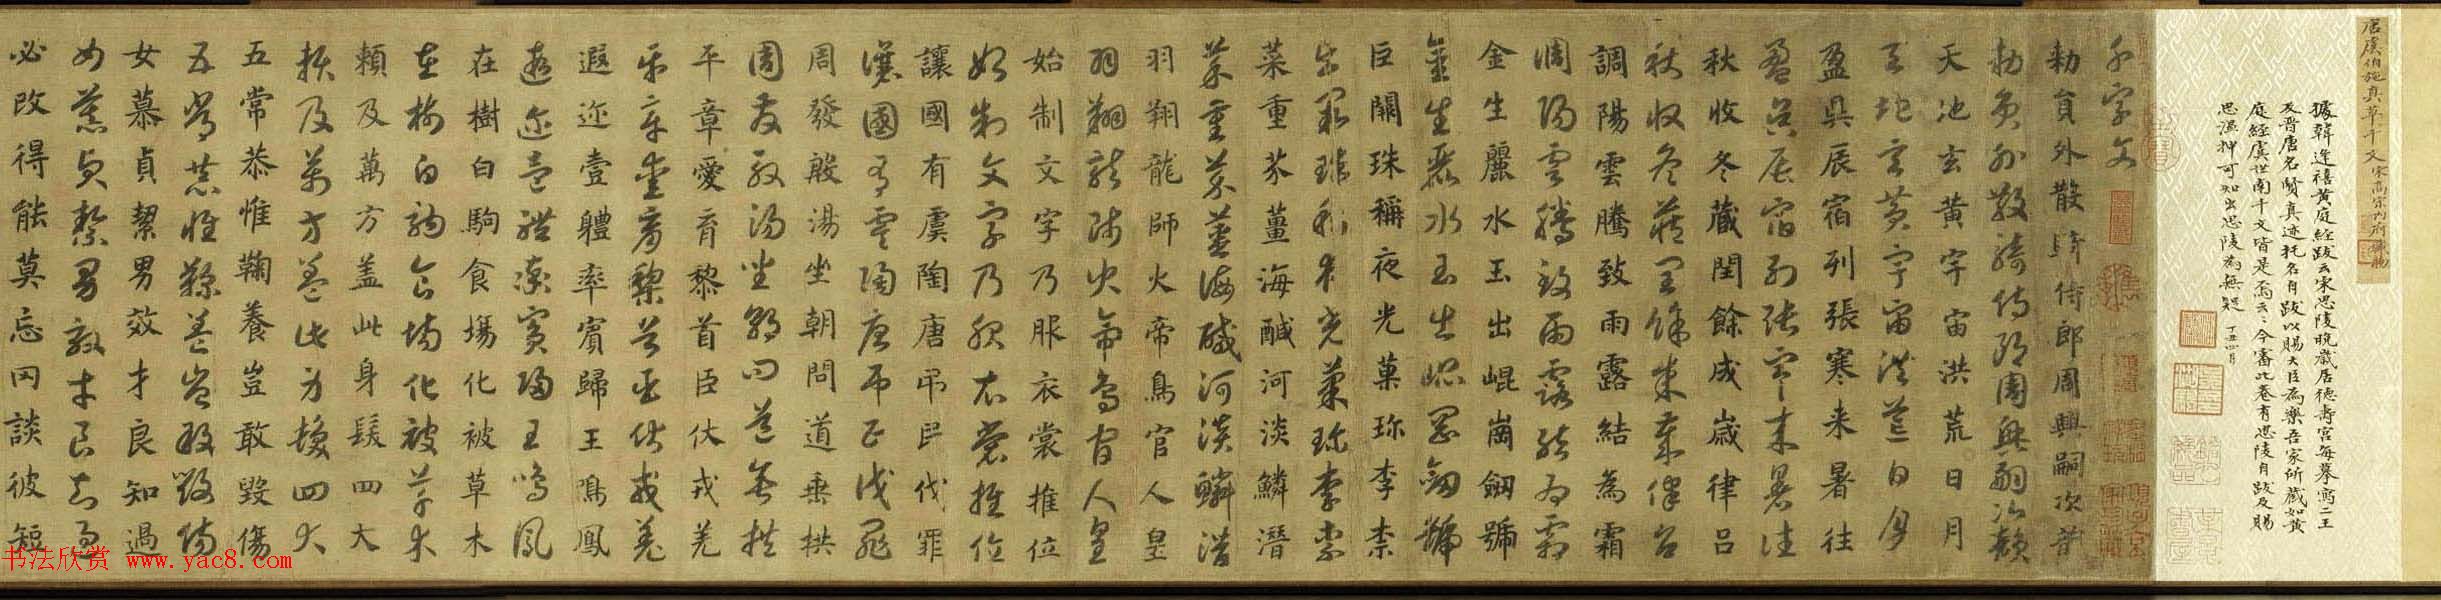 唐虞伯施真草千文宋高宗內府
據韓逢禧黃庭經跋云宋思陵晚歲居德壽宮每摹寫二王
及晉唐名賢真迹托名自跋以賜大臣為樂吾家所藏如黃
庭經虞世南千文皆是焉云云今審此卷有思陵自跋及賜
思溫押可知出思陵為無疑 丁丑四月
千字文
勑員外散騎侍郎周興嗣次韵
勑員外散騎侍郎周興嗣次韻
天地玄黃宇宙洪荒日月
天地玄黃宇宙洪荒日月
盈昃辰宿列張寒来暑往
盈昃辰宿列張寒来暑往
秋收冬蔵閏餘成歲律呂
秋收冬藏閏餘成歲律呂
調陽雲騰致雨露結為霜
調陽雲騰致雨露結為霜
金生麗水玉出崐崗劒號
金生麗水玉出崐崗劒號
巨闕珠稱夜光菓珍李柰
巨闕珠稱夜光菓珍李柰
菜重芥薑海醎河淡鱗潛
菜重芥薑海醎河淡鱗潛
羽翔龍師火帝鳥官人皇
羽翔龍師火帝鳥官人皇
始制文字乃服衣裳推位
始制文字乃服衣裳推位
讓國有虞陶唐吊民伐罪
讓國有虞陶唐吊民伐罪
周發殷湯坐朝問道垂拱
周發殷湯坐朝問道垂拱
平章愛育黎首臣伏戎羌
平章愛育黎首臣伏戎羌
遐迩壹軆率賓歸王鳴鳳
遐迩壹體率賓歸王鳴鳳
在樹白駒食場化被草木
在樹白駒食場化被草木
頼及萬方盖此身髮四大
頼及萬方盖此身髮四大
五常恭惟鞠養豈敢毀傷
五常恭惟鞠養豈敢毀傷
女慕貞絜男效才良知過
女慕貞絜男效才良知過
必改得能莫忘罔談彼短
书法欣赏 www.yac8.com